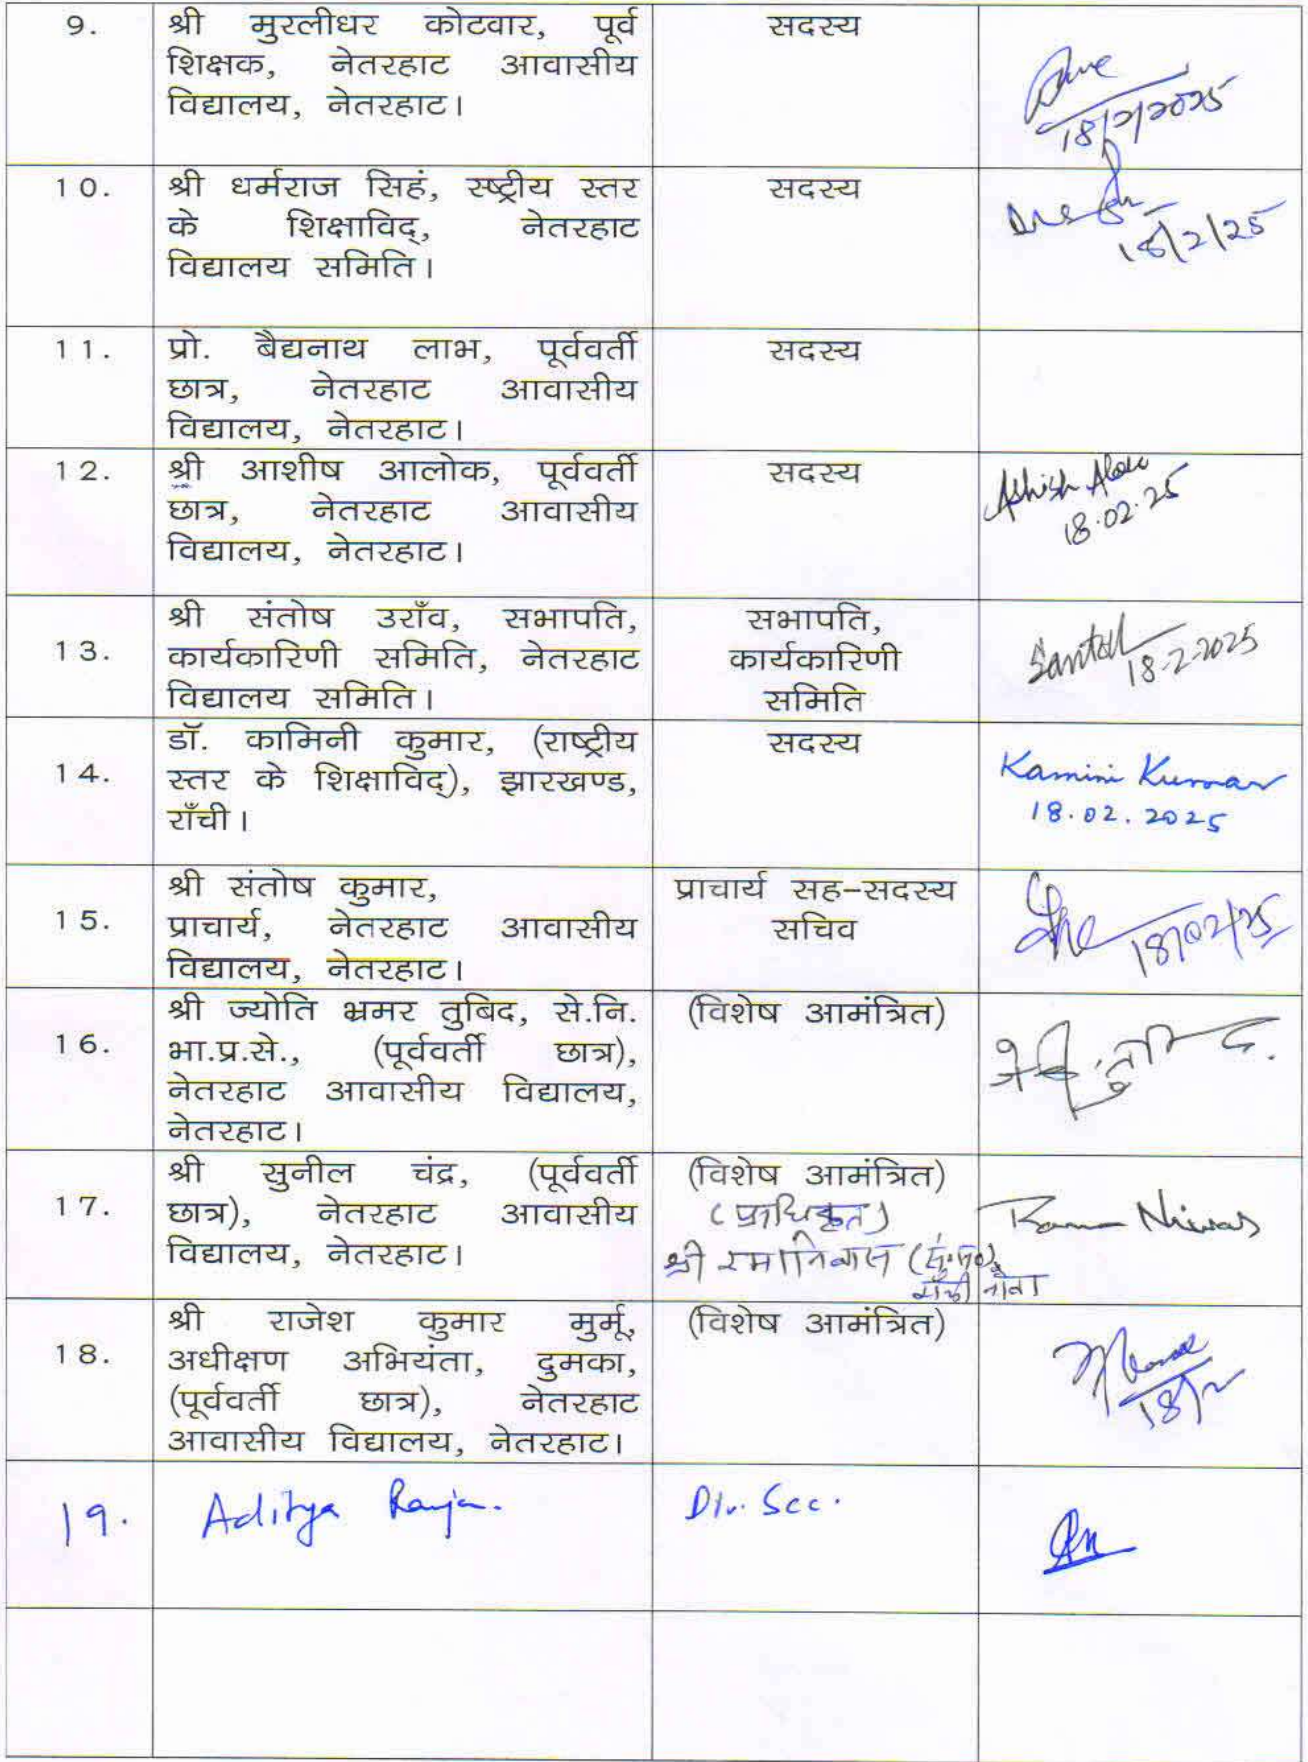 9.
श्री मुरलीधर कोटवार, पूर्व
शिक्षक, नेतरहाट आवासीय
विद्यालय, नेतरहाट।
सदस्य
18/2/2025
10.
श्री धर्मराज सिहं, स्ष्ट्रीय स्तर
के शिक्षाविद्, नेतरहाट
विद्यालय समिति।
सदस्य
18/2/25
11.
प्रो. बैद्यनाथ लाभ, पूर्ववर्ती
छात्र, नेतरहाट आवासीय
विद्यालय, नेतरहाट।
सदस्य
12.
श्री आशीष आलोक, पूर्ववर्ती
छात्र, नेतरहाट आवासीय
विद्यालय, नेतरहाट।
सदस्य
Ashish Alok
18.02.25
13.
श्री संतोष उराँव, सभापति,
कार्यकारिणी समिति, नेतरहाट
विद्यालय समिति।
सभापति,
कार्यकारिणी
समिति
Santosh
18-2-2025
14.
डॉ. कामिनी कुमार, (राष्ट्रीय
स्तर के शिक्षाविद्), झारखण्ड,
राँची।
सदस्य
Kamini Kumar
18.02.2025
15.
श्री संतोष कुमार,
प्राचार्य, नेतरहाट आवासीय
विद्यालय, नेतरहाट।
प्राचार्य सह-सदस्य
सचिव
18/02/25
16.
श्री ज्योति भ्रमर तुबिद, से.नि.
भा.प्र.से., (पूर्ववर्ती छात्र),
नेतरहाट आवासीय विद्यालय,
नेतरहाट।
(विशेष आमंत्रित)
17.
श्री सुनील चंद्र, (पूर्ववर्ती
छात्र), नेतरहाट आवासीय
विद्यालय, नेतरहाट।
(विशेष आमंत्रित)
(प्राधिकृत)
श्री रमानिवास
Rama Niwas
18.
श्री राजेश कुमार मुर्मू,
अधीक्षण अभियंता, दुमका,
(पूर्ववर्ती छात्र), नेतरहाट
आवासीय विद्यालय, नेतरहाट।
(विशेष आमंत्रित)
18/2
19.
Aditya Ranjan.
Div. Sec.